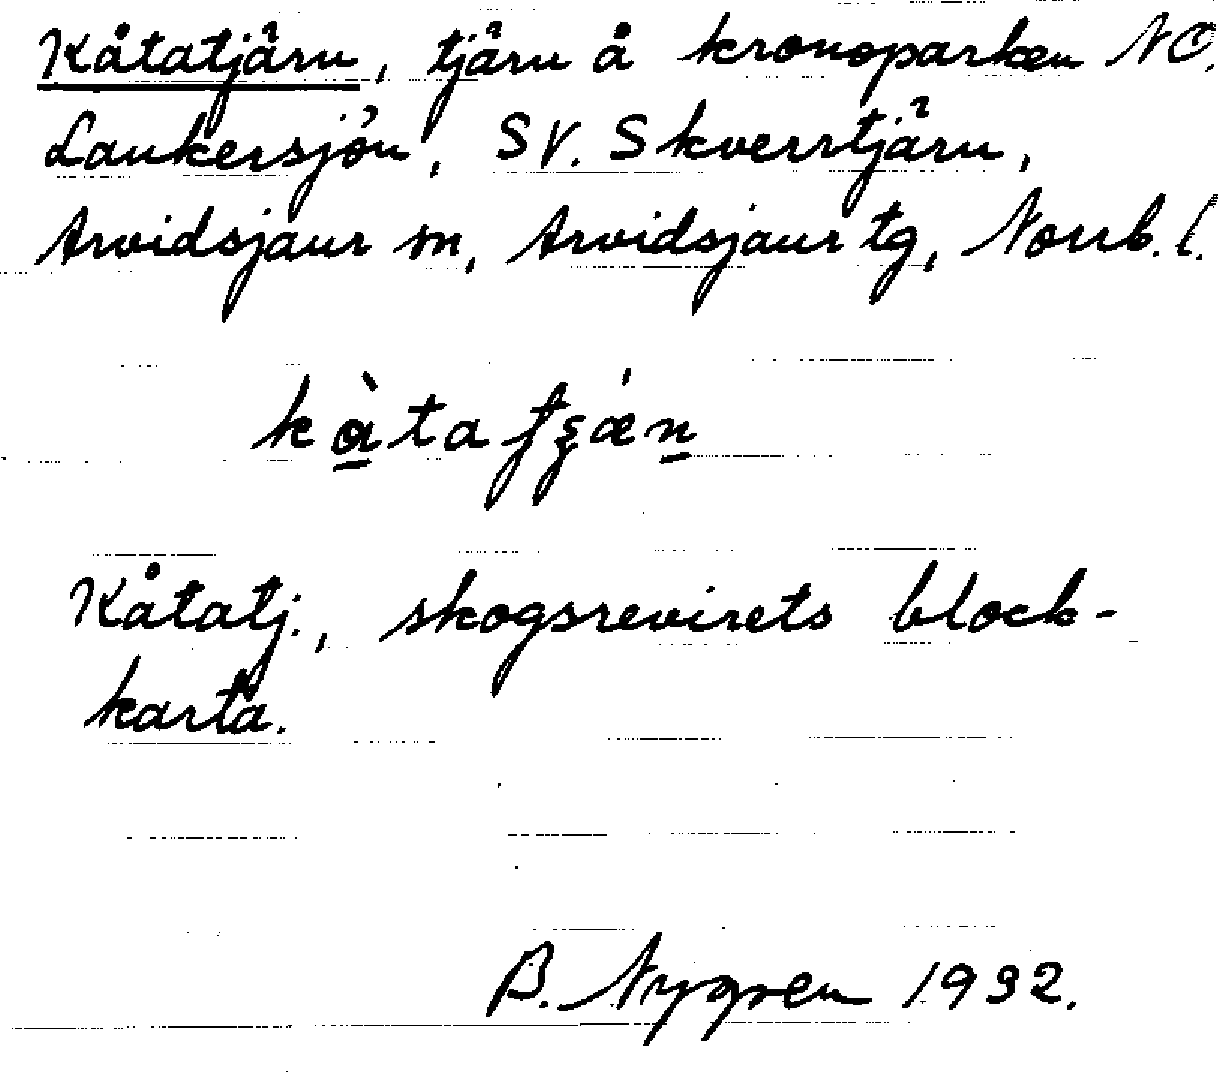 Kåtatjärn, tjärn å kronoparken NO.
Laukersjön, SV. Skverrtjärn,
Arvidsjaur sn, Arvidsjaur tg, Norrb. l.
Kåtatj., skogsrevirets block-
karta.
B. Nygren 1932.